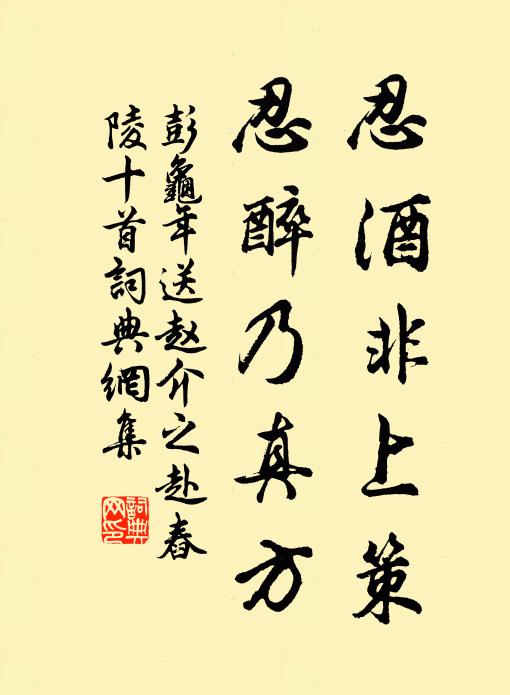 忍酒非上策
忍醉乃真方
彭龜年送赵介之赴舂
陵十首詞典網集
詞典
网印